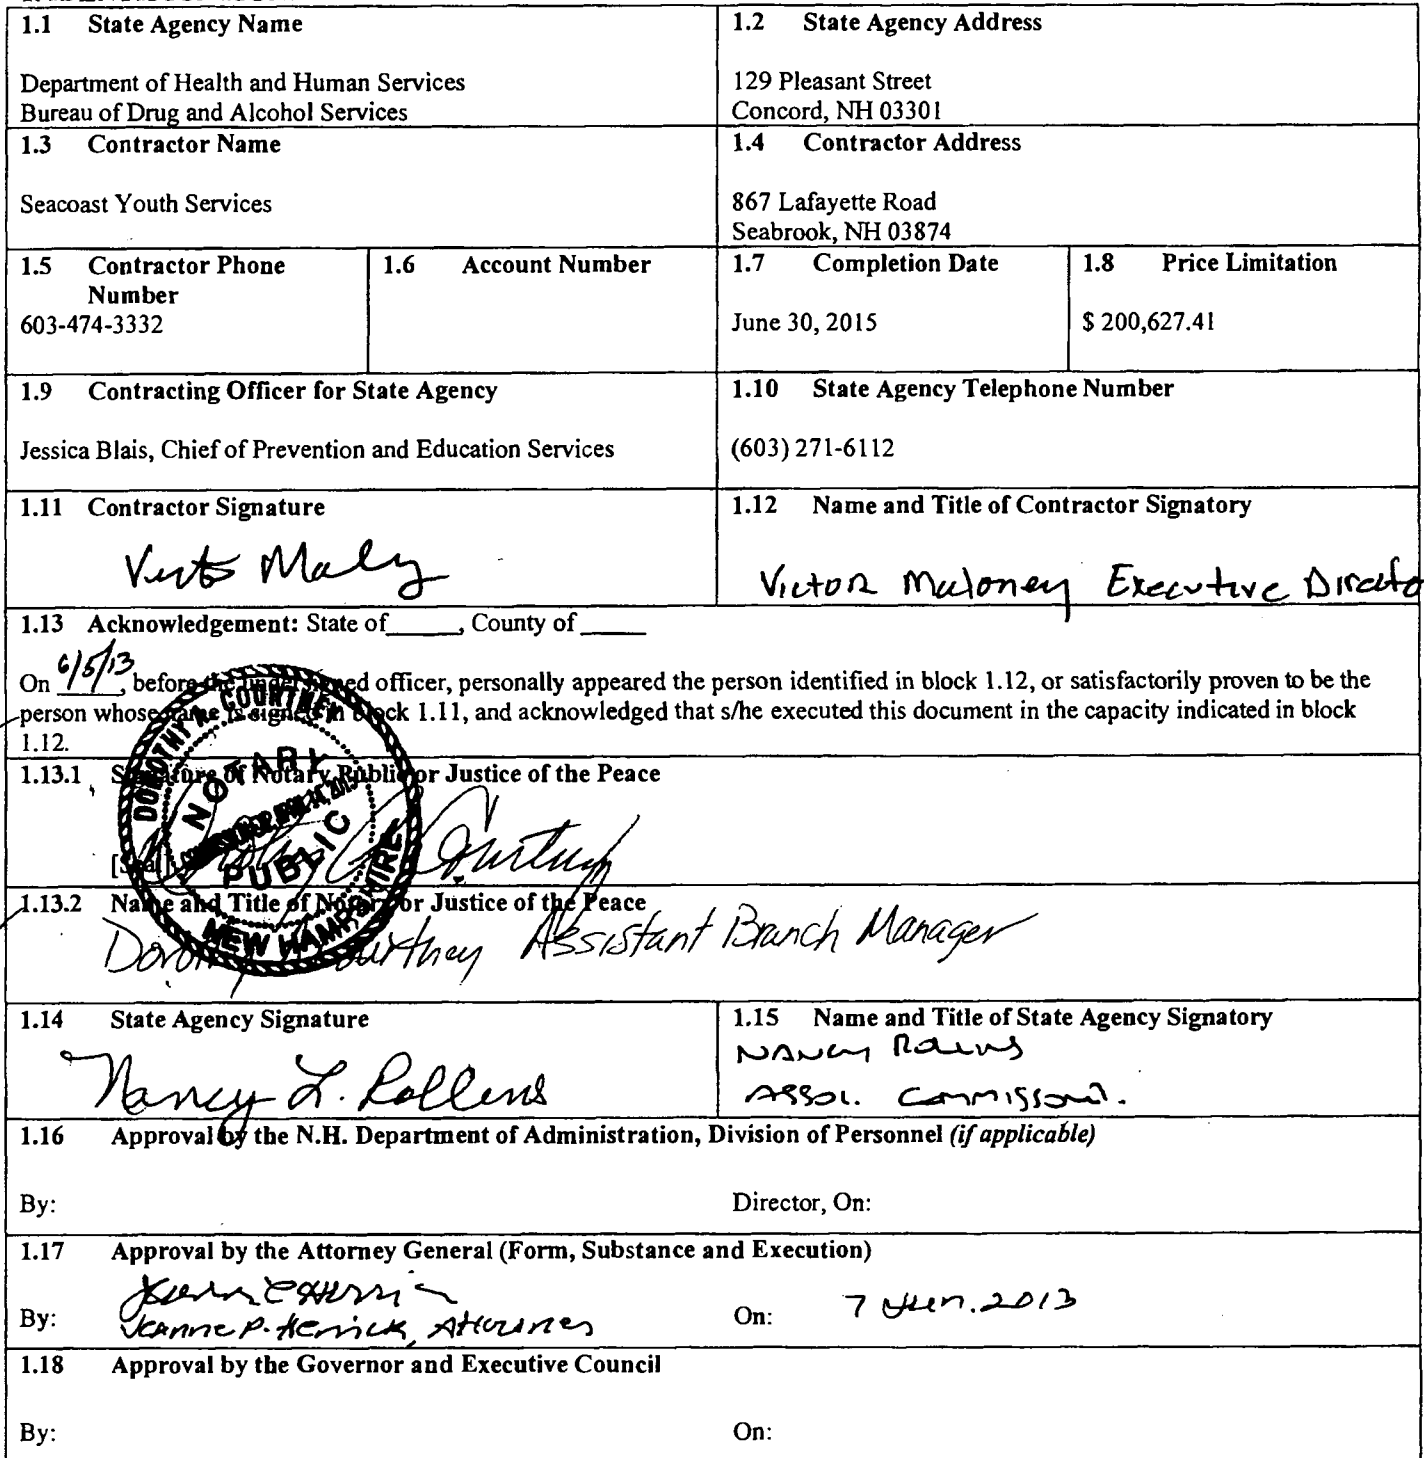 1.1 State Agency Name
Department of Health and Human Services
Bureau of Drug and Alcohol Services
1.2 State Agency Address
129 Pleasant Street
Concord, NH 03301
1.3 Contractor Name
Seacoast Youth Services
1.4 Contractor Address
867 Lafayette Road
Seabrook, NH 03874
1.5 Contractor Phone
Number
603-474-3332
1.6 Account Number
1.7 Completion Date
June 30, 2015
1.8 Price Limitation
$ 200,627.41
1.9 Contracting Officer for State Agency
Jessica Blais, Chief of Prevention and Education Services
1.10 State Agency Telephone Number
(603) 271-6112
1.11 Contractor Signature
1.12 Name and Title of Contractor Signatory
Victor Maloney Executive Directo
1.13 Acknowledgement: State of_____, County of _____
On 6/5/13, before the undersigned officer, personally appeared the person identified in block 1.12, or satisfactorily proven to be the
person whose name is signed in block 1.11, and acknowledged that s/he executed this document in the capacity indicated in block
1.12.
1.13.1 Signature of Notary Public or Justice of the Peace
[Seal]
DOROTHY COURTNEY
NOTARY
PUBLIC
NEW HAMPSHIRE
1.13.2 Name and Title of Notary or Justice of the Peace
Dorothy Courtney Assistant Branch Manager
1.14 State Agency Signature
Nancy L. Rollins
1.15 Name and Title of State Agency Signatory
Nancy Rollins
Assoc. Commissioner.
1.16 Approval by the N.H. Department of Administration, Division of Personnel (if applicable)
By:
Director, On:
1.17 Approval by the Attorney General (Form, Substance and Execution)
By: Jeanne P. Herrick, Attorney
On: 7 Jun. 2013
1.18 Approval by the Governor and Executive Council
By:
On: